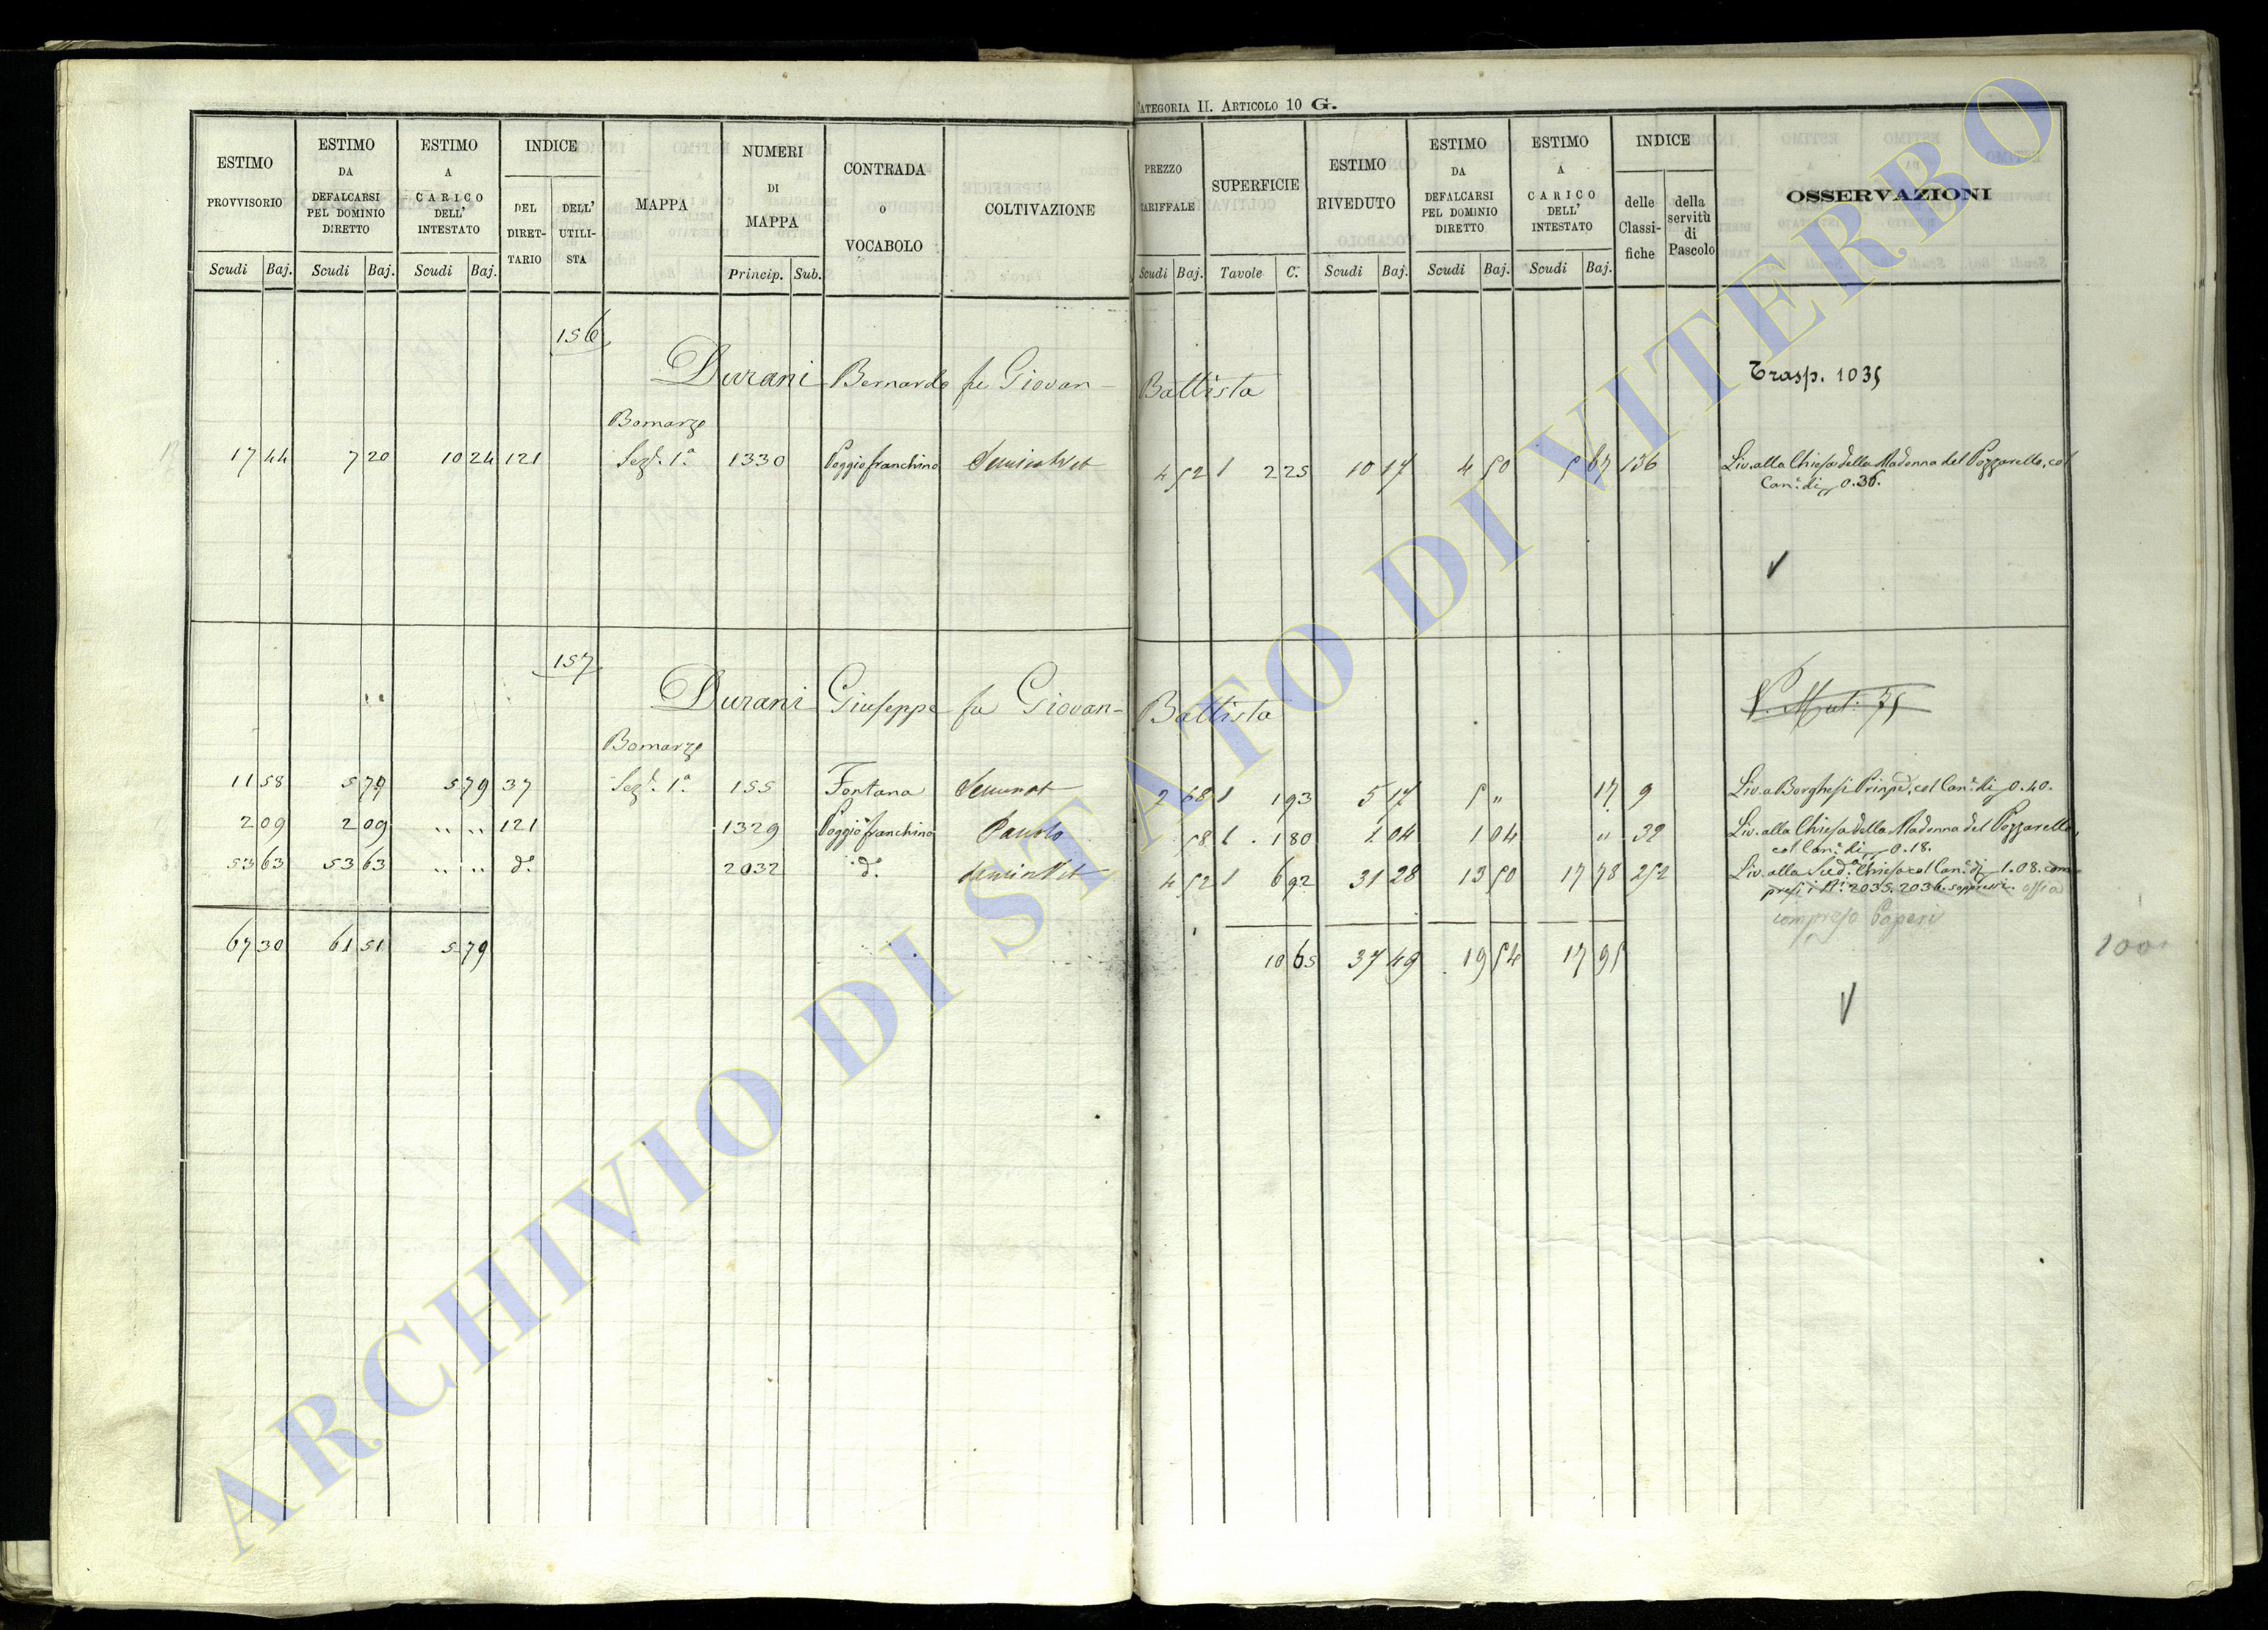 CATEGORIA II. ARTICOLO 10 G.
ESTIMO PROVVISORIO
ESTIMO DA DEFALCARSI PEL DOMINIO DIRETTO
ESTIMO A CARICO DELL' INTESTATO
INDICE
DEL DIRET-TARIO
DELL' UTILI-STA
MAPPA
NUMERI DI MAPPA
CONTRADA O VOCABOLO
COLTIVAZIONE
PREZZO TARIFFALE
SUPERFICIE
ESTIMO RIVEDUTO
ESTIMO DA DEFALCARSI PEL DOMINIO DIRETTO
ESTIMO A CARICO DELL' INTESTATO
INDICE
delle Classi-fiche
della servitù di Pascolo
OSSERVAZIONI
Scudi Baj. Scudi Baj. Scudi Baj. Princip. Sub. Scudi Baj. Tavole C. Scudi Baj. Scudi Baj. Scudi Baj.
156
Durani Bernardo fu Giovan- Battista Trasp. 1035
Bomarzo
17 44 7 20 10 24 121 Sez. 1a 1330 Poggio franchino 4 52 2 25 10 17 4 50 5 67 136 Liv. alla Chiesa della Madonna del Pozzarello, col
Can. di 0.36.
157
Durani Giuseppe fu Giovan- Battista V. Mut. 75
Bomarzo
11 58 5 79 5 79 37 Sez. 1a 155 Fontana Seminat 2 68 1 93 5 17 5 " 17 9 Liv. a Borghesi Princ, col Can. di 0.40.
2 09 2 09 " " 121 1329 Poggio franchino Pascolo 58 1 80 1 04 1 04 " 32 Liv. alla Chiesa della Madonna del Pozzarello,
col Can. di 0.18.
53 63 53 63 " " do 2032 do 4 52 6 92 31 28 13 50 17 78 252 Liv. alla Sud. Chiesa col Can. di 1.08. com-
presi i N. 2035. 2036. soppressi. ossia
compreso
67 30 61 51 5 79 10 65 37 49 19 54 17 95
100
ARCHIVIO DI STATO DI VITERBO